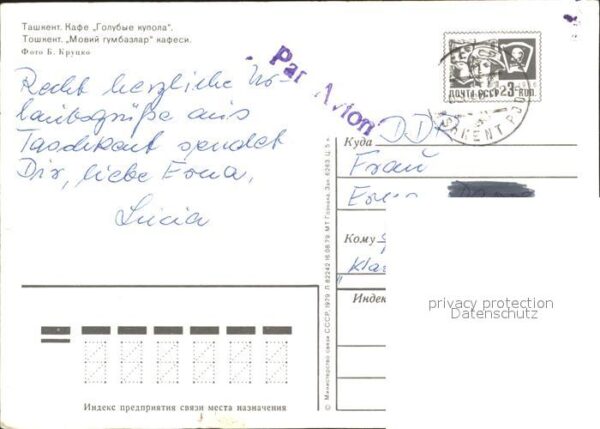 Ташкент. Кафе „Голубые купола".
Тошкент. „Мовий гумбазлар" кафеси.
Фото Б. Круцко
Par Avion
ПОЧТА СССР 3 КОП
Recht herzliche Ur-
laubsgrüße aus
Taschkent sendet
Dir, liebe Erna,
Lucia
Куда DDR
Frau
Кому
Индекс
privacy protection
Datenschutz
© Министерство связи СССР, 1979. Л 82242 16.08.79. МТ Гознака. Зак. 6263. Ц. 5 к.
Индекс предприятия связи места назначения